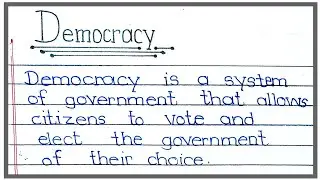 Democracy
Democracy is a system
of government that allows
citizens to vote and
elect the government
of their choice.